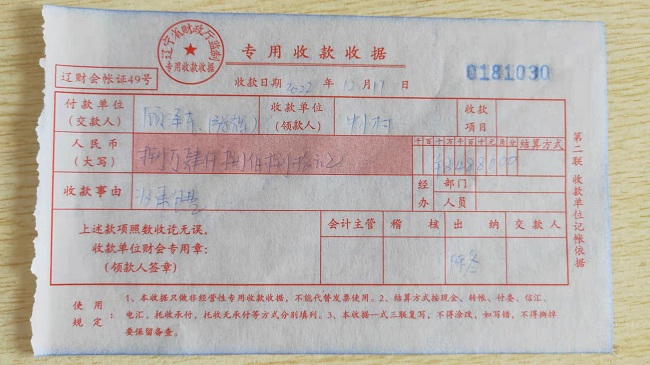 辽宁省财政厅监制
专用收款收据
专用收款收据
辽财会帐证49号
收款日期 2022 年 12 月 17 日
0181030
付款单位
(交款人)
收款单位
(领款人)
收款
项目
人民币
(大写)
捌万肆仟捌佰捌拾元
千百十万千百十元角分
结算方式
¥8488000
收款事由
经 部门
办 人员
上述款项照数收讫无误。
收款单位财会专用章:
(领款人签章)
会计主管 稽核 出纳 交款人
第二联 收款单位记帐依据
使用
规定:
1、本收据只做非经营性专用收款收据,不能代替发票使用。2、结算方式按现金、转帐、付委、信汇、
电汇、托收承付、托收无承付等方式分别填列。3、本收据一式三联复写,不得涂改,如写错,不得撕掉
要保留备查。